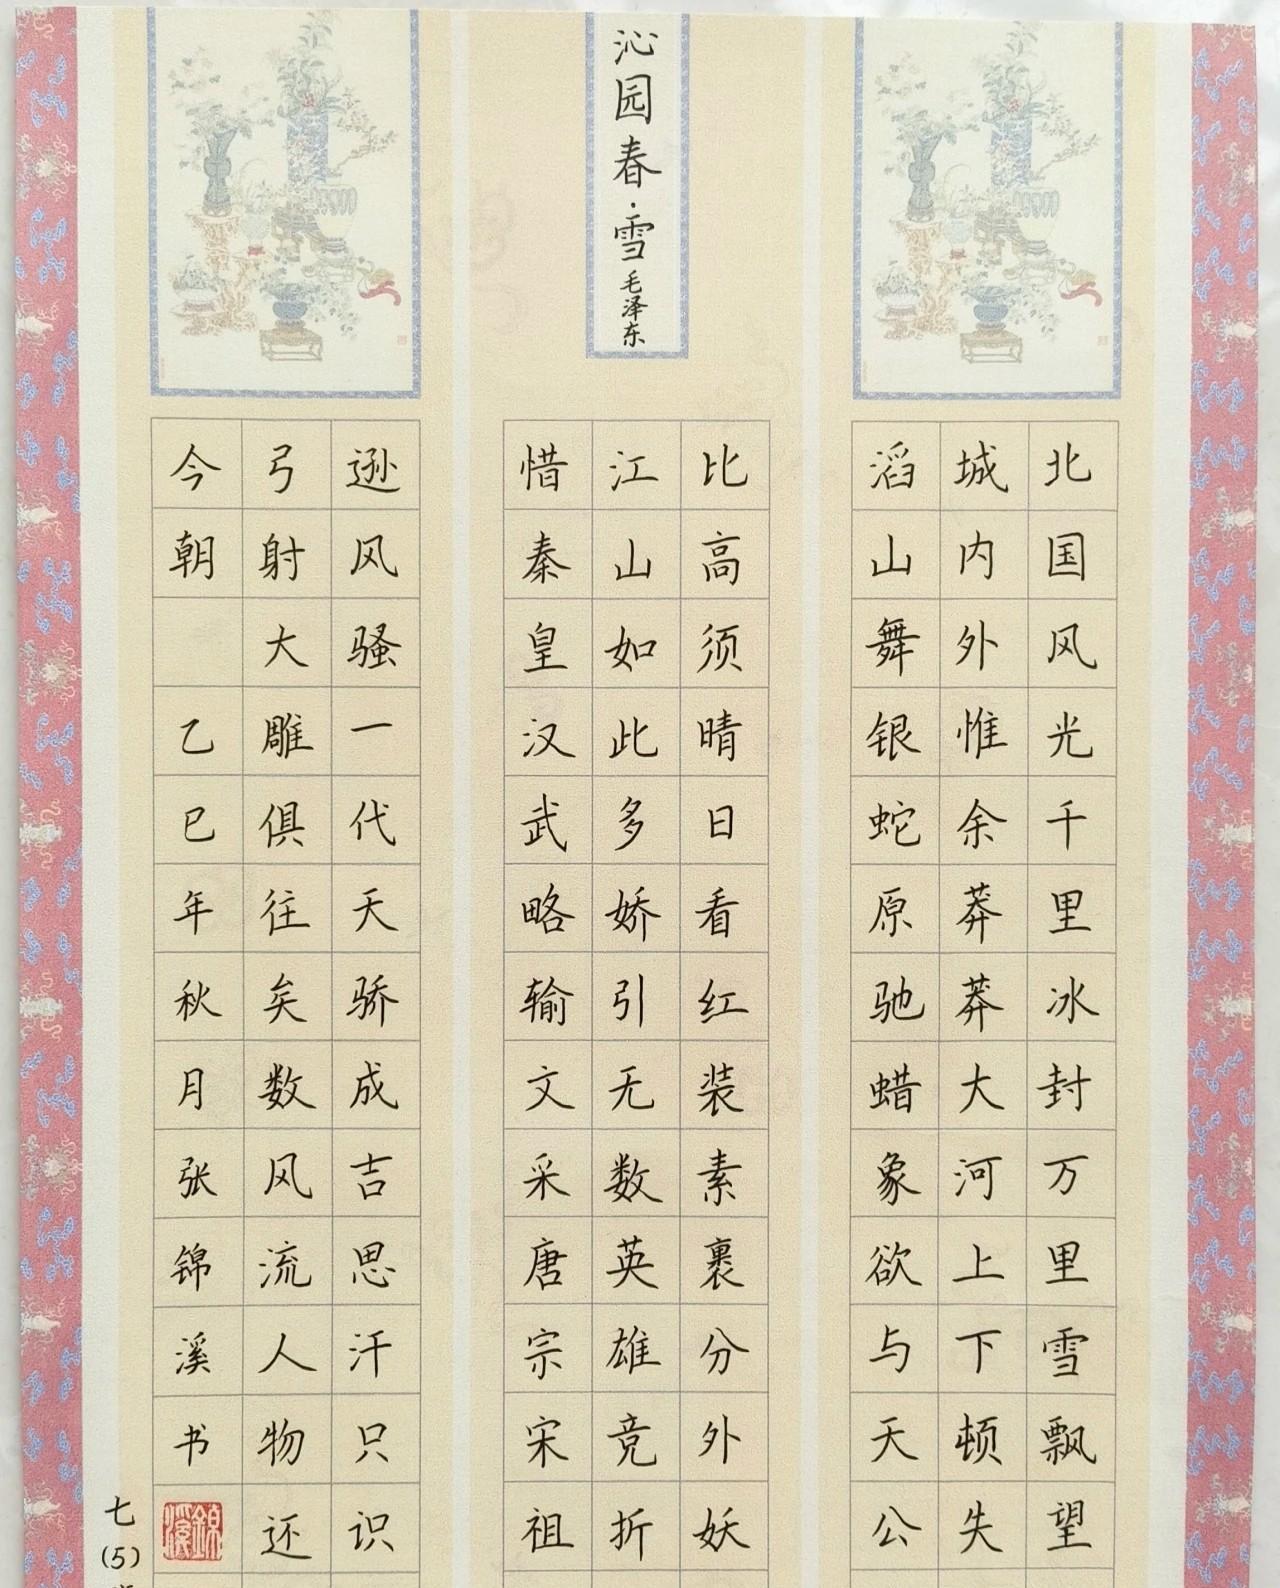 沁园春·雪 毛泽东
北国风光千里冰封万里雪飘望
城内外惟余莽莽大河上下顿失
滔山舞银蛇原驰蜡象欲与天公
比高须晴日看红装素裹分外妖
江山如此多娇引无数英雄竞折
惜秦皇汉武略输文采唐宗宋祖
逊风骚一代天骄成吉思汗只识
弓射大雕俱往矣数风流人物还
今朝 乙巳年秋月张锦溪书
錦溪
七(5)